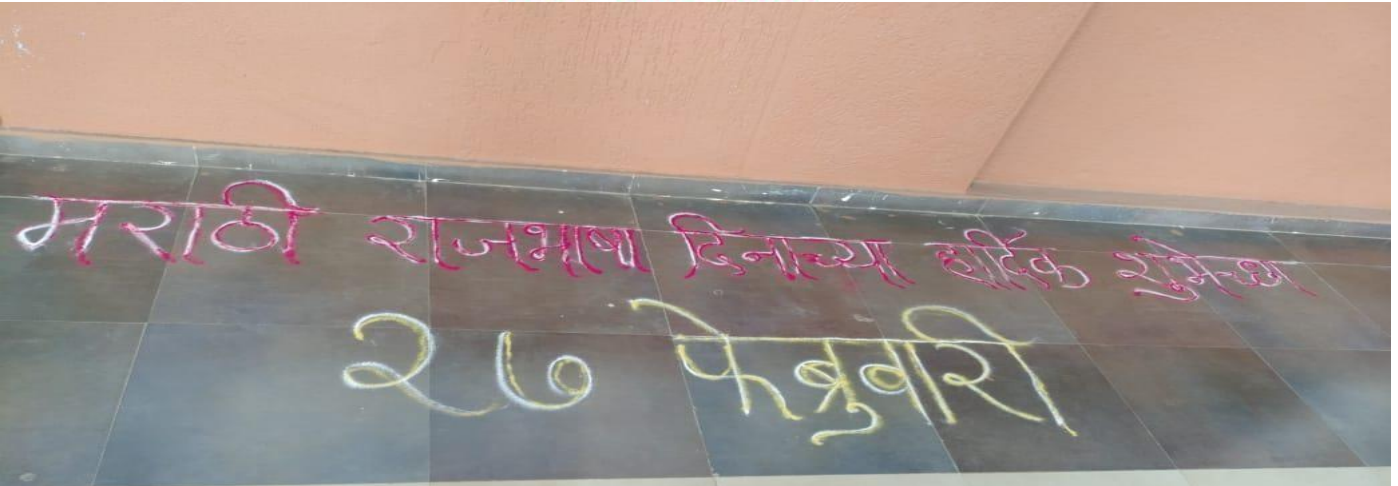 मराठी राजभाषा दिनाच्या हार्दिक शुभेच्छा
२७ फेब्रुवारी